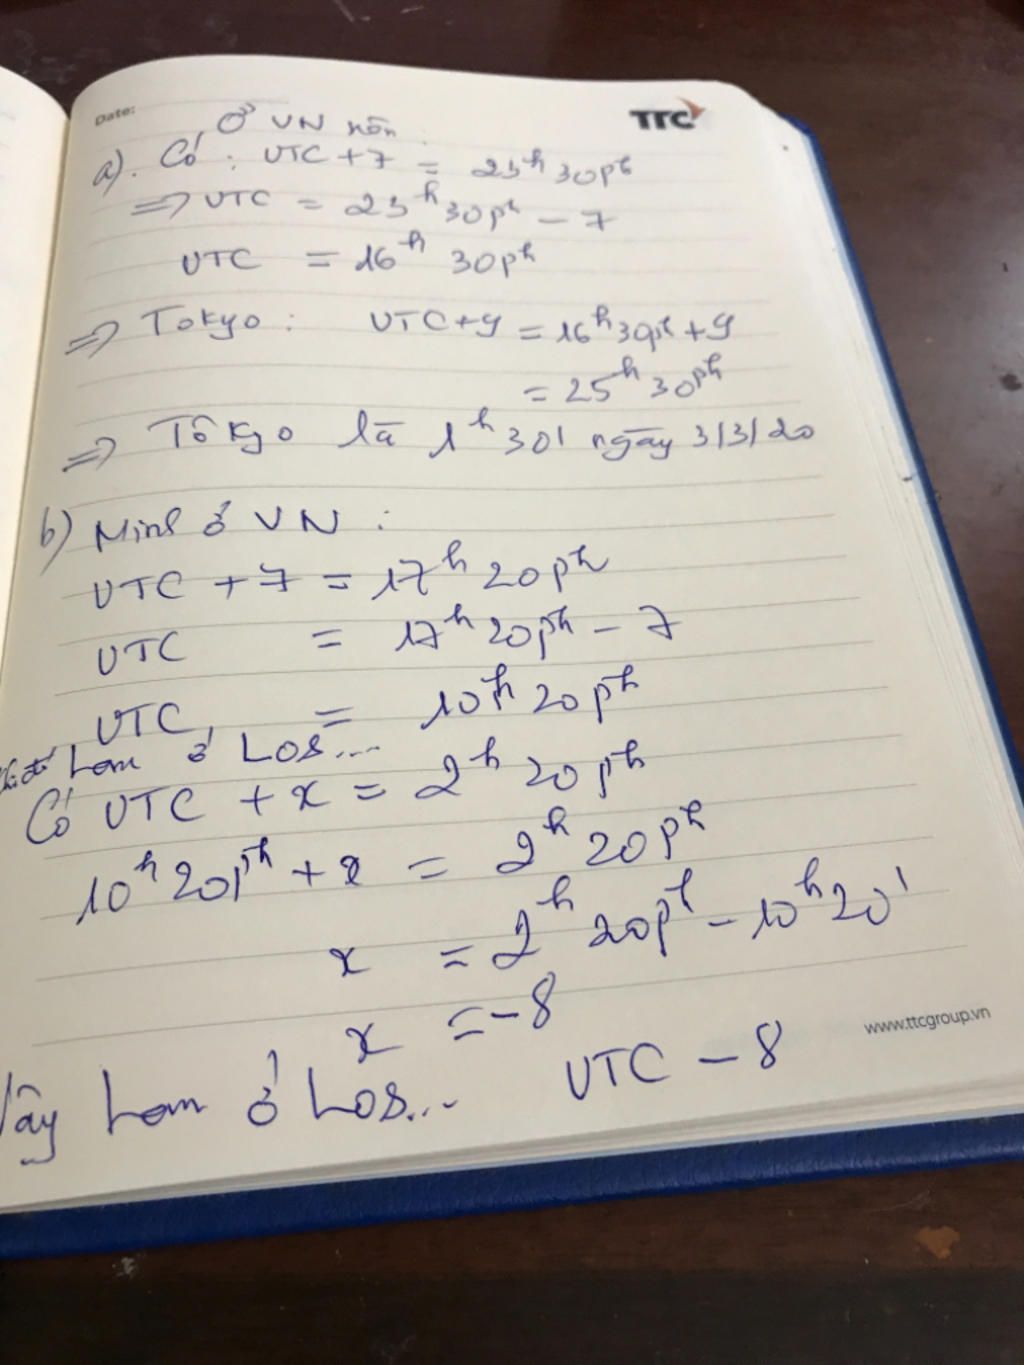 Date:
TTC
Ở VN nên
a). Có: UTC + 7 = 23h 30ph
=> UTC = 23h 30ph - 7
UTC = 16h 30ph
=> Tokyo: UTC+9 = 16h 30ph + 9
= 25h 30ph
=> Tôkyo là 1h 30' ngày 3/3/20
b) Minh ở VN :
UTC + 7 = 17h 20ph
UTC = 17h 20ph - 7
UTC = 10h 20ph
Lam ở Los...
Có UTC + x = 2h 20ph
10h 20ph + x = 2h 20ph
x = 2h 20ph - 10h 20'
x = -8
Vây Lam ở Los... UTC - 8
www.ttcgroup.vn